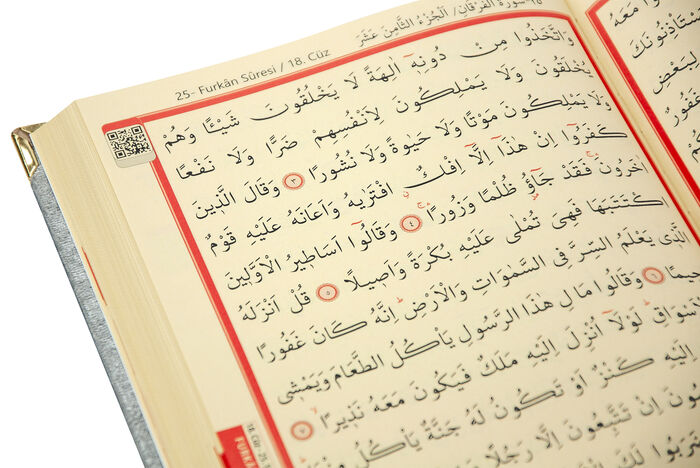 25- Furkân Sûresi / 18. Cüz
سُورَةُ الْفُرْقَانِ/ اَلْجُزْءُ الثَّامِنَ عَشَرَ
وَاتَّخَذُوا مِنْ دُونِه۪ٓ اٰلِهَةً لَا يَخْلُقُونَ شَيْـًٔا وَهُمْ
يُخْلَقُونَ وَلَا يَمْلِكُونَ لِاَنْفُسِهِمْ ضَرًّا وَلَا نَفْعًا
وَلَا يَمْلِكُونَ مَوْتًا وَلَا حَيٰوةً وَلَا نُشُورًا ﴿٣﴾ وَقَالَ الَّذ۪ينَ
كَفَرُٓوا اِنْ هٰذَٓا اِلَّٓا اِفْكٌ افْتَرٰيهُ وَاَعَانَهُ عَلَيْهِ قَوْمٌ
اٰخَرُونَۚ فَقَدْ جَٓاؤُ۫ ظُلْمًا وَزُورًاۚ ﴿٤﴾ وَقَالُٓوا اَسَاط۪يرُ الْاَوَّل۪ينَ
اكْتَتَبَهَا فَهِيَ تُمْلٰى عَلَيْهِ بُكْرَةً وَاَص۪يلًا ﴿٥﴾ قُلْ اَنْزَلَهُ
الَّذ۪ي يَعْلَمُ السِّرَّ فِي السَّمٰوَاتِ وَالْاَرْضِۜ اِنَّهُ كَانَ غَفُورًا
﴿٦﴾ وَقَالُوا مَالِ هٰذَا الرَّسُولِ يَأْكُلُ الطَّعَامَ وَيَمْش۪ي
لَوْلَٓا اُنْزِلَ اِلَيْهِ مَلَكٌ فَيَكُونَ مَعَهُ نَذ۪يرًاۙ ﴿٧﴾
اِلَيْهِ كَنْزٌ اَوْ تَكُونُ لَهُ جَنَّةٌ يَأْكُلُ
اِنْ تَتَّبِعُونَ اِلَّا رَجُلًا